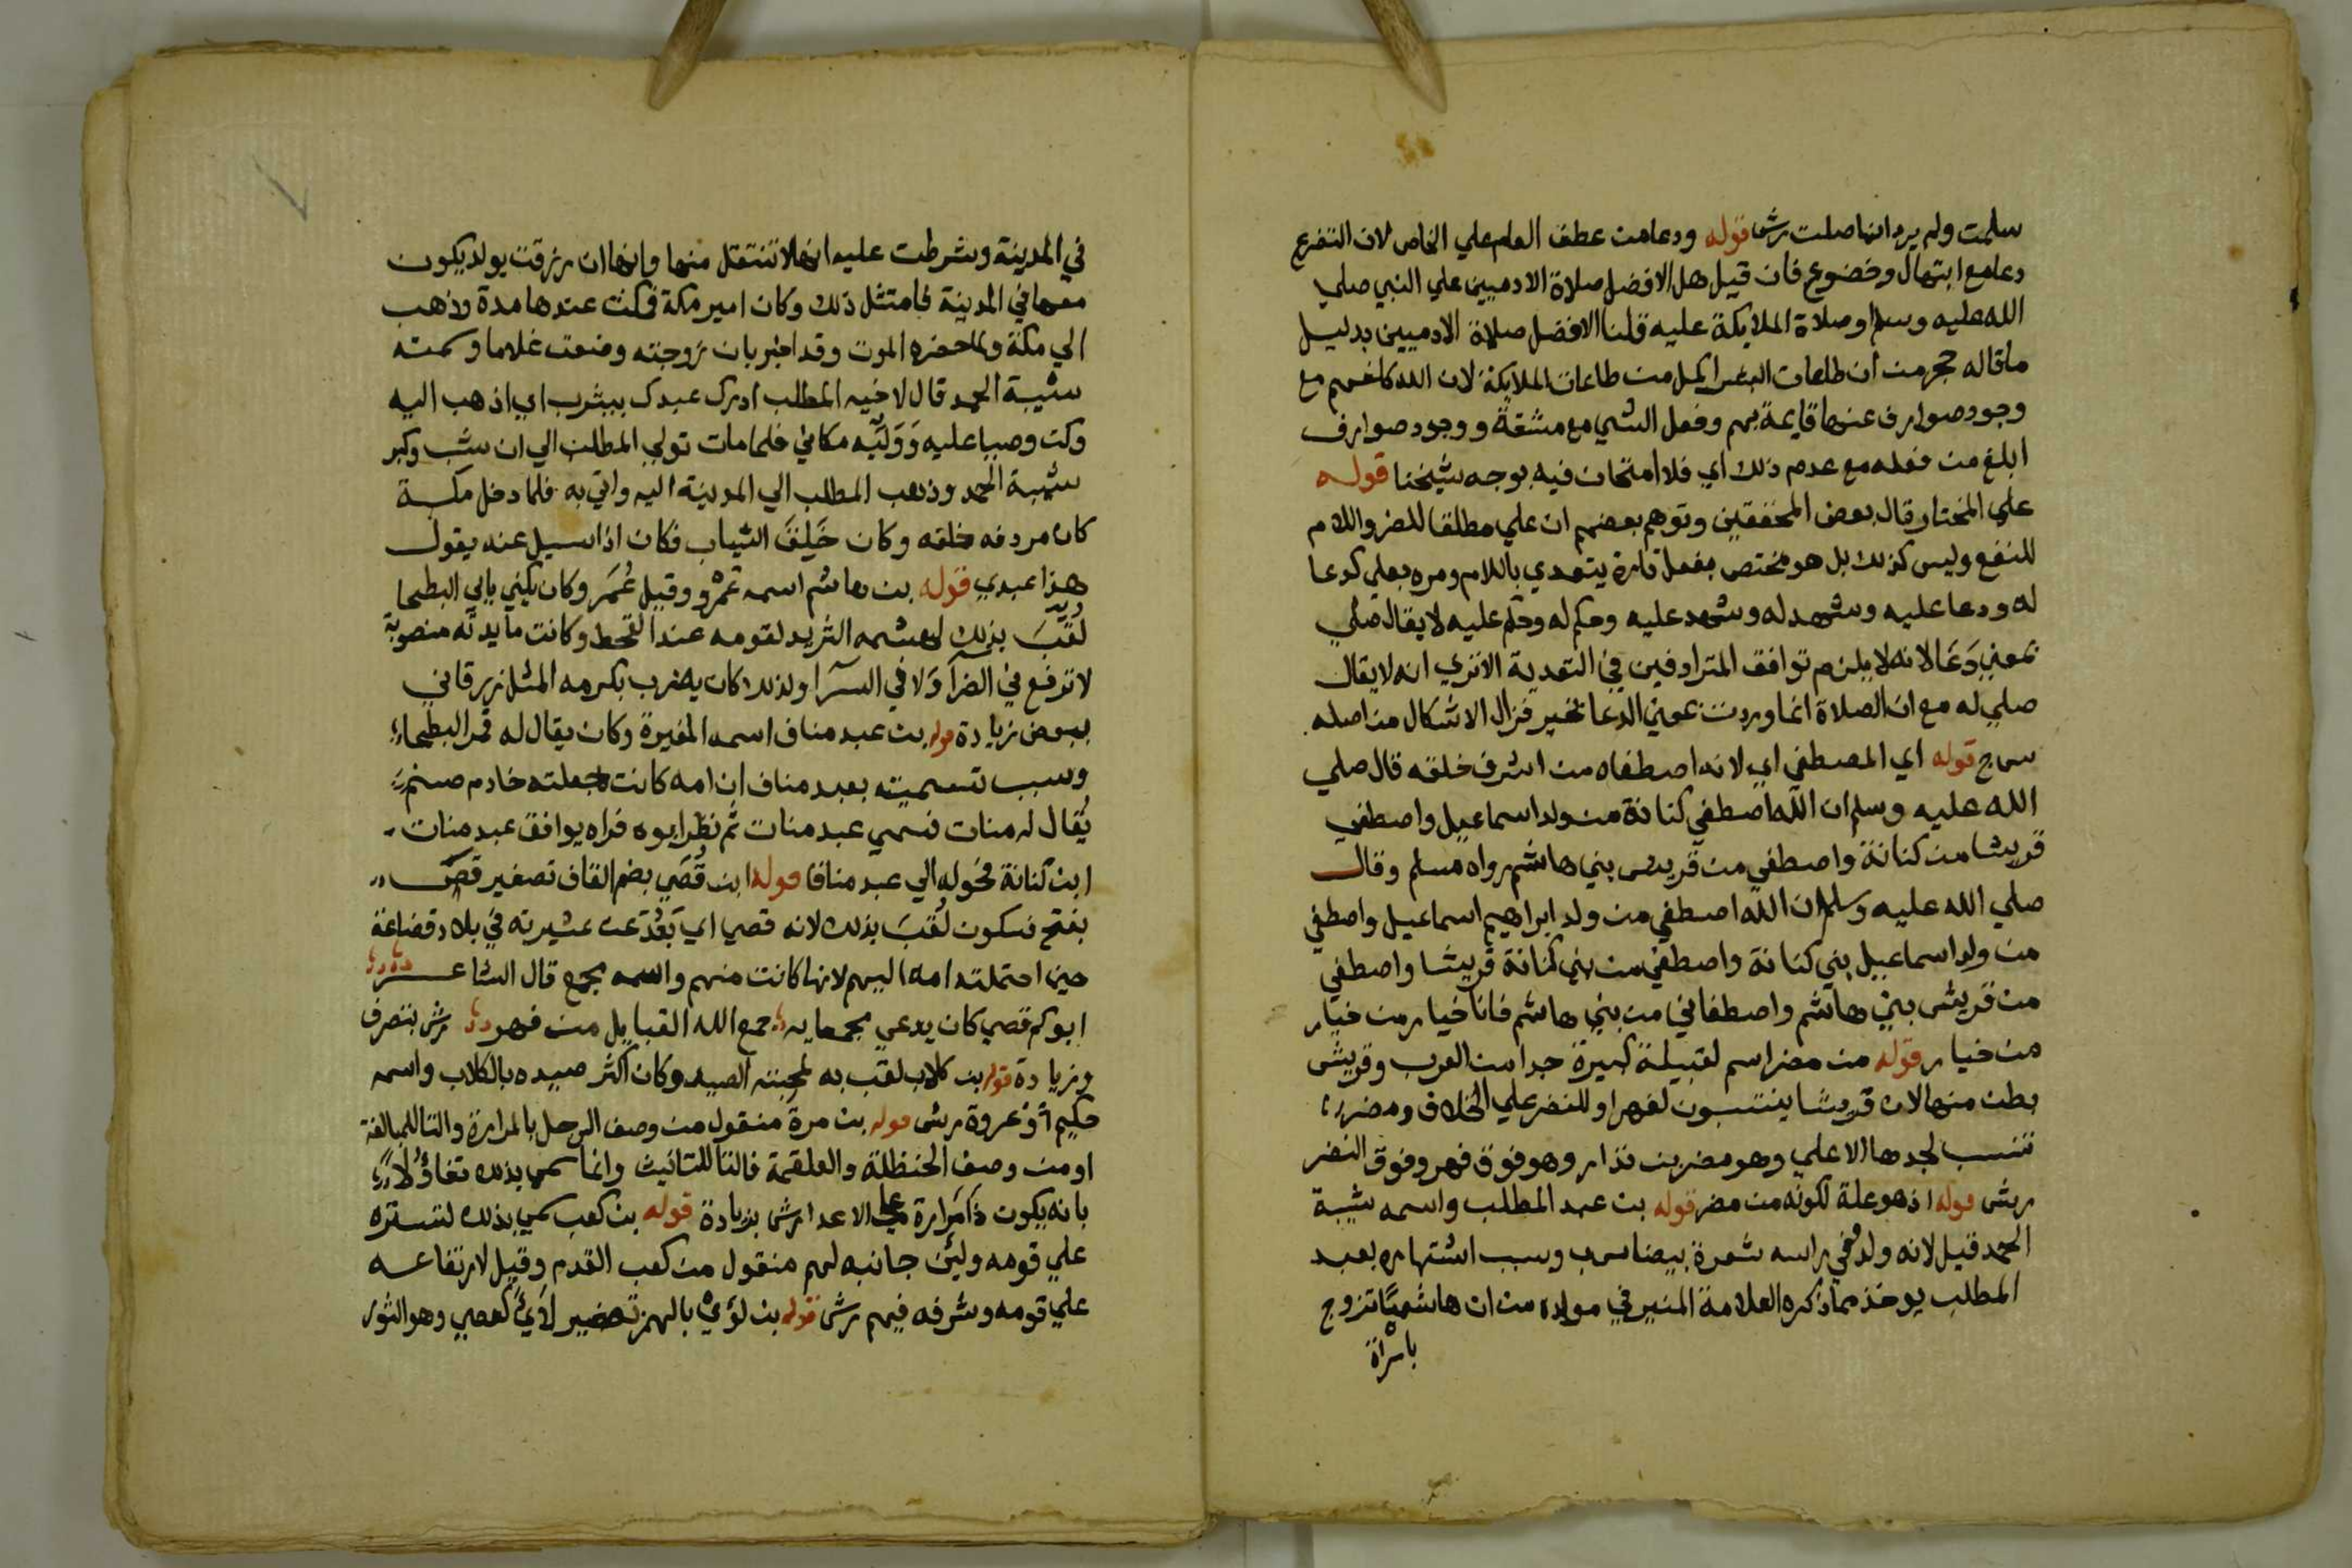 سلمت ولم يرد انها صلت رش قوله ودعا من عطف العام علي الخاص لان التضرع
دعا مع ابتهال وخضوع فان قيل هل الافضل صلاة الادميين علي النبي صلي
الله عليه وسلم او صلاة الملايكة عليه قلنا الافضل صلاة الادميين بدليل
ما قاله حجر من ان طاعات البشر اكمل من طاعات الملايكة لان الله كلفهم مع
وجود صوارف عنها قايمة بهم وفعل الشي مع مشقة ووجود صوارف
ابلغ من فعله مع عدم ذلك اي فلا امتحان فيه بوجه شيخنا قوله
علي المختار قال بعض المحققين وتوهم بعضهم ان علي مطلقا للضر واللام
للنفع وليس كذلك بل هو مختص بفعل تارة يتعدي باللام ومره بعلي كدعا
له ودعا عليه وشهد له وشهد عليه وحكم له وحكم عليه لا يقال صلي
بمعني دَعَا لانه لا يلزم توافق المترادفين في التعدية الا تري انه لا يقال
صلي له مع ان الصلاة انما وردت بمعني الدعا بخير فزال الاشكال من اصله
س ج قوله اي المصطفي اي لانه اصطفاه من اشرف خلقه قال صلي
الله عليه وسلم ان الله اصطفي كنانة من ولد اسماعيل واصطفي
قريشا من كنانة واصطفي من قريش بني هاشم رواه مسلم وقال
صلي الله عليه وسلم ان الله اصطفي من ولد ابراهيم اسماعيل واصطفي
من ولد اسماعيل بني كنانة واصطفي من بني كنانة قريشا واصطفي
من قريش بني هاشم واصطفاني من بني هاشم فانا خيار من خيار
من خيار قوله من مضر اسم لقبيلة كبيرة جدا من العرب وقريش
بطن منها لان قريشا ينتسبون لفهر او للنضر علي الخلاف ومضر
تنسب لجدها الاعلي وهو مضر بن نذار وهو فوق فهر وفوق النضر
رش قوله اذ هو علة لكونه من مضر قوله بن عبد المطلب واسمه شيبة
الحمد قيل لانه ولد وفي راسه شعرة بيضا س ب وسبب اشتهاره بعبد
المطلب يوخذ مما ذكره العلامة المنير في مولده من ان هاشميًا تزوج
بامراة
في المدينة وشرطت عليه انها لا تنتقل منها وانها ان رزقت بولد يكون
معها في المدينة فامتثل ذلك وكان امير مكة فمكث عندها مدة وذهب
الي مكة ولما حضره الموت وقد اخبر بان زوجته وضعت غلاما وسمته
شيبة الحمد قال لاخيه المطلب ادرك عبدك بيثرب اي اذهب اليه
وكن وصيا عليه وَوَلِّيَه مكاني فلما مات تولي المطلب الي ان شب وكبر
شيبة الحمد وذهب المطلب الي المدينة اليه واتي به فلما دخل مكة
كان مردفه خلفه وكان خَلِقَ الثياب فكان اذا سيل عنه يقول
هذا عبدي قوله بن هاشم اسمه عَمْرو وقيل عُمَر وكان يكني بابي البطحا
لُقِّبَ بذلك لهشمه الثريد لقومه عند القحط وكانت مايدته منصوبة
لا ترفع في الضرآ وَلا في السرآ ولذلك كان يضرب بكرمه المثل زرقاني
ببعض زيادة قوله بن عبد مناف اسمه المغيرة وكان يقال له قمر البطحاء
وسبب تسميته بعبد مناف ان امه كانت جعلته خادم صنم
يُقال له منات فسمي عبد منات ثم نظر ابوه فراه يوافق عبد منات
ابن كنانة فحوله الي عبد مناف قوله ابن قُصَي بضم القاف تصغير قصي
بفتح فسكون لُقبَ بذلك لانه قصي اي بَعُدَ عن عشيرته في بلاد قضاعة
حين احتملته امه اليهم لانها كانت منهم واسمه مجمع قال الشاعر
ابوكم قصي كان يدعي مجمعا به جمع الله القبايل من فهر رش بتصرف
وزيادة قوله بن كلاب لقب به لمحبته الصيد وكان اكثر صيده بالكلاب واسمه
حكيم أوْ عروة رش قوله بن مرة منقول من وصف الرجل بالمرارة والتا للمبالغة
او من وصف الحنظلة والعلقمة فالتا للتانيث وانما سمي بذلك تفاؤُلًا
بانه يكون ذَا مَرارة علي الاعدا رش بزيادة قوله بن كعب سمي بذلك لتستره
علي قومه ولين جانبه لهم منقول من كعب القدم وقيل لارتفاعه
علي قومه وشرفه فيهم رش قوله بن لؤيْ بالهمز تصغير لَأيْ كعصي وهو الثور